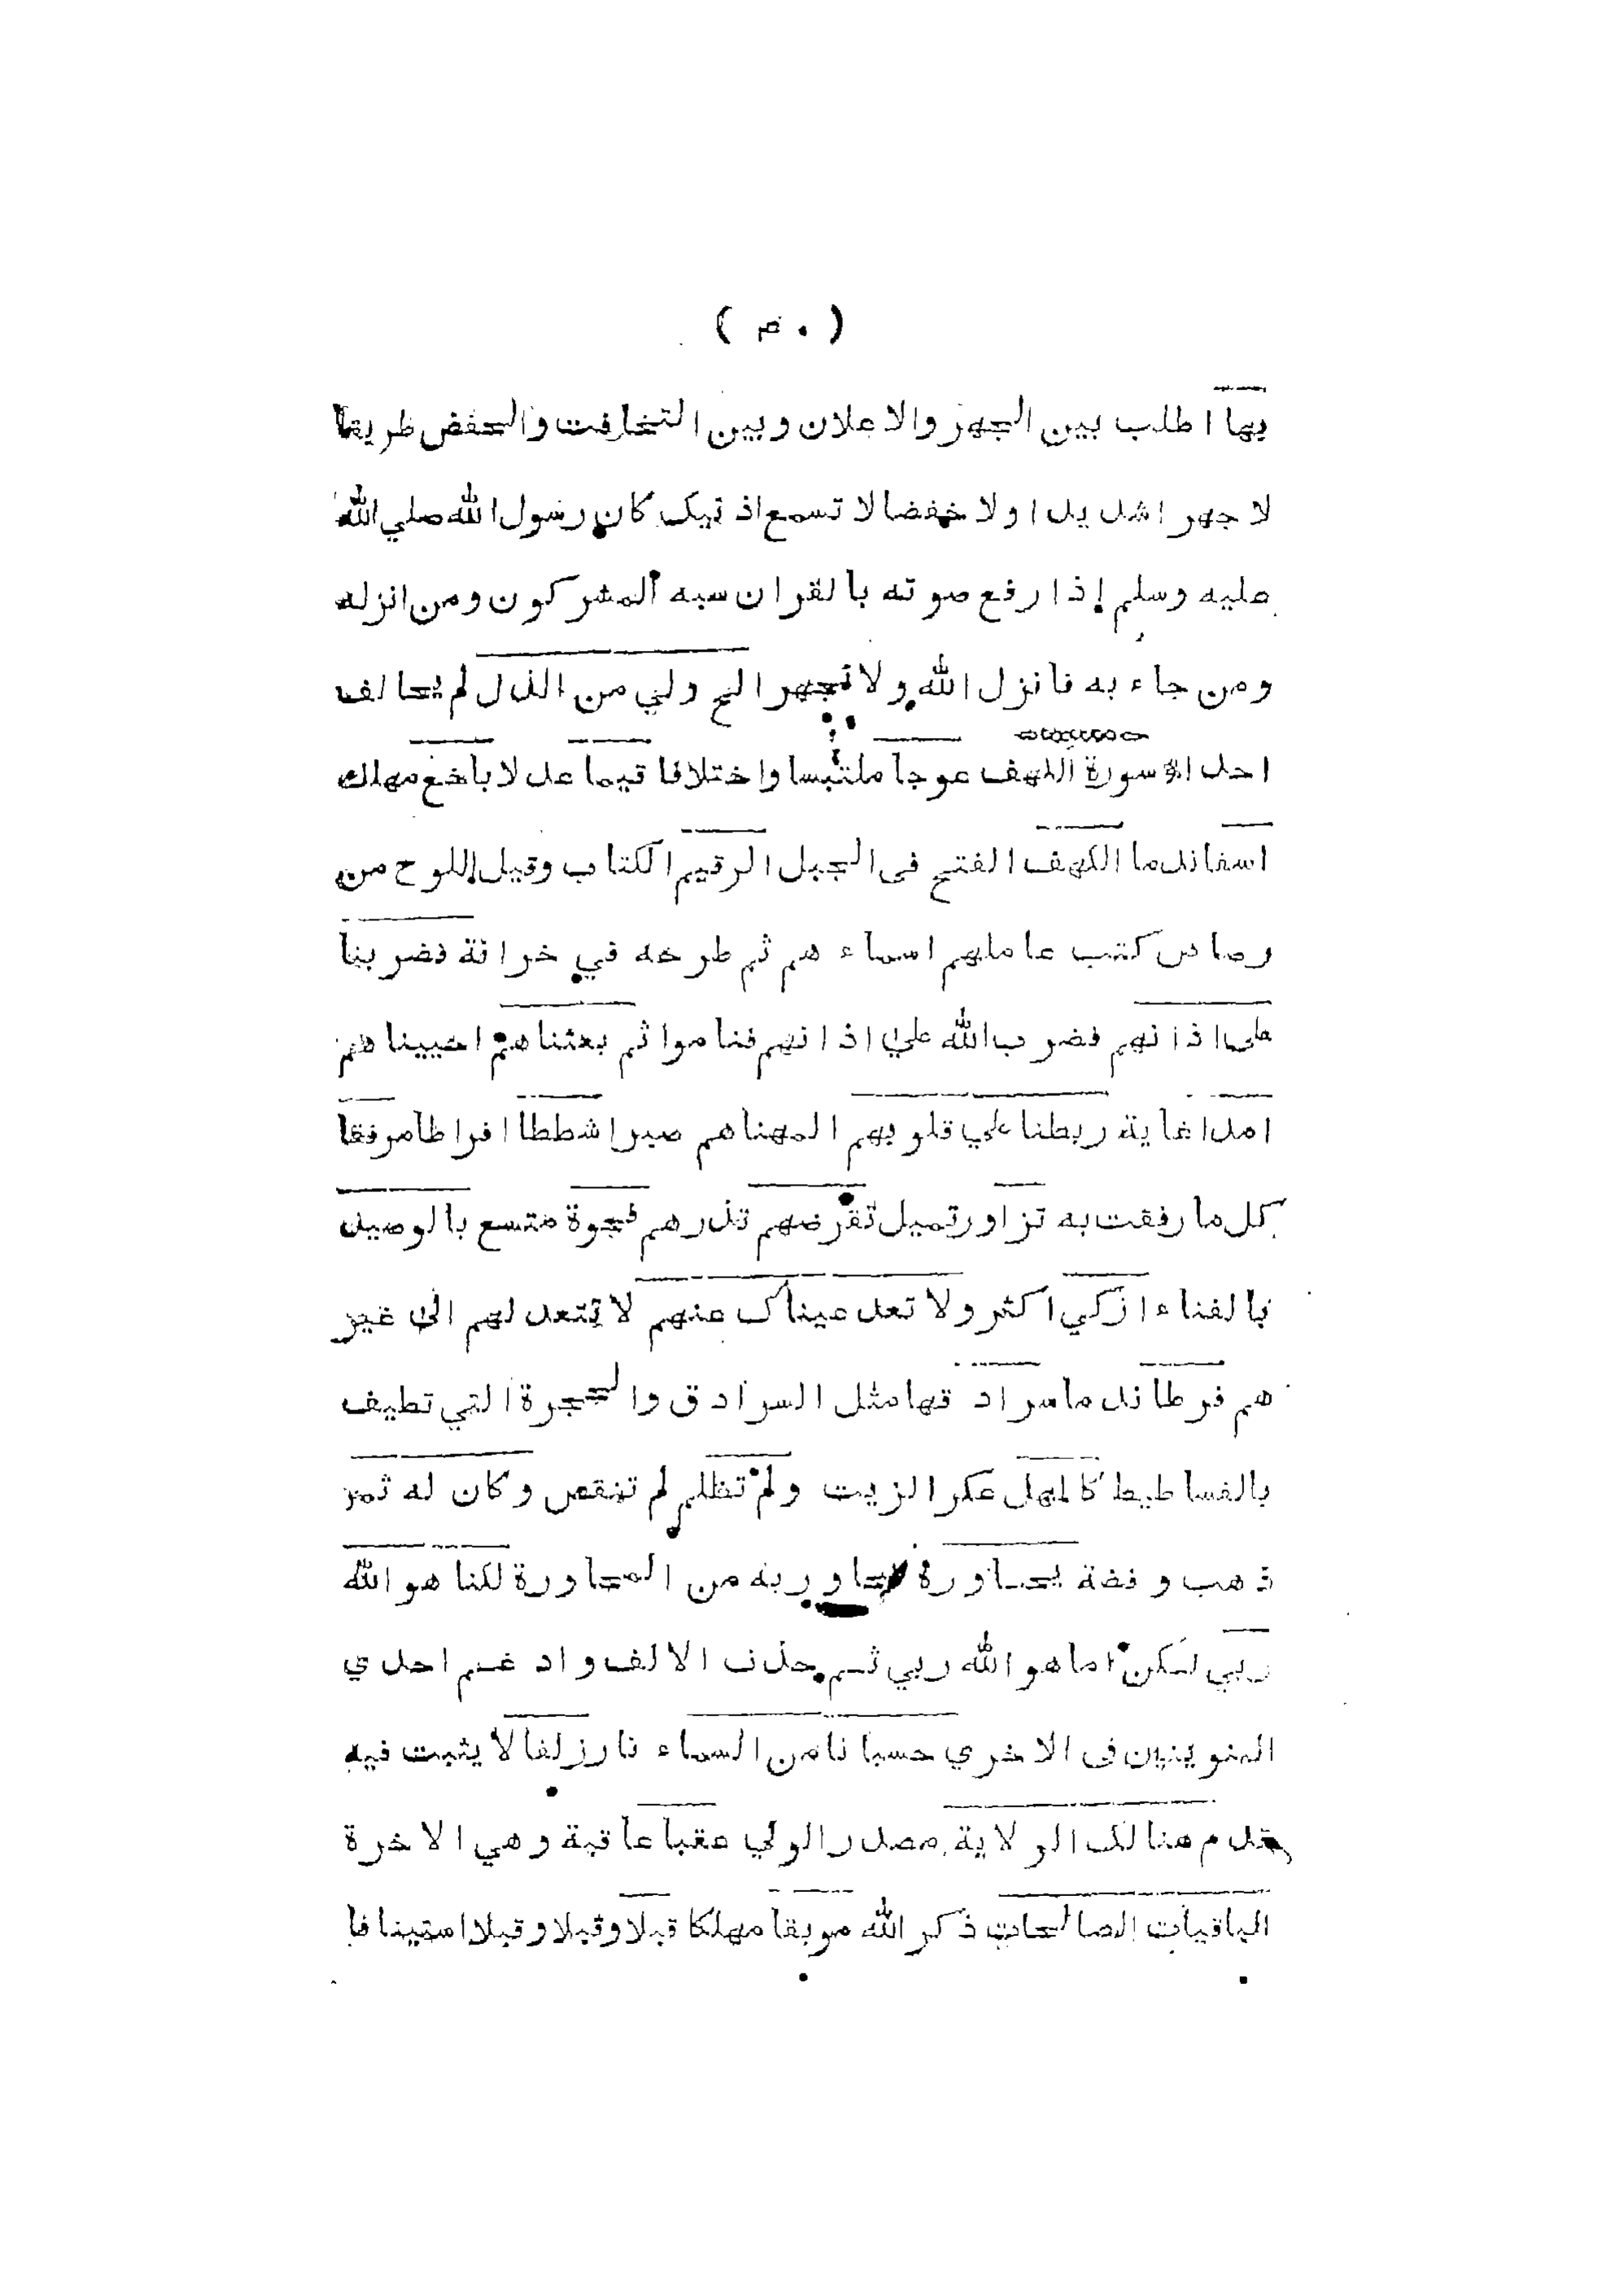 ( ٥٠ )
بها اطلب بين الجهر والاعلان وبين التخافت والخفض طريقا
لا جهر اشديدا ولا خفضا لا تسمع اذنيك كان رسول الله صلي الله
عليه وسلم إذا رفع صوته بالقران سبه المشركون ومن انزله
ومن جاء به فانزل الله ولا تجهر الخ ولي من الذل لم يحالف
احدا سورة الكهف عوجا ملتبسا واختلافا قيما عدلا باخع مهلك
اسفا ندما الكهف الفتح فى الجبل الرقيم الكتاب وقيل اللوح من
رصاص كتب عاملهم اسماء هم ثم طرحه في خزانة فضربنا
على اذانهم فضرب الله علي اذانهم فناموا ثم بعثناهم احييناهم
امدا غاية ربطنا علي قلوبهم الهمناهم صبرا شططا افراطا مرفقا
كل ما رفقت به تزاور تميل تقرضهم تذرهم فجوة متسع بالوصيد
بالفناء ازكي اكثر ولا تعد عيناك عنهم لا تتعد لهم الى غير
هم فرطا ندما سرادقها مثل السرادق والحجرة التي تطيف
بالفساطيط كالمهل عكر الزيت ولم تظلم لم تنقص وكان له ثمر
ذهب وفضة يحاوره يحاور به من المحاورة لكنا هو الله
ربي لكن انا هو الله ربي ثم حذف الالف وادغم احدي
النونين فى الاخري حسبانا من السماء نارزلفا لا يثبت فيه
قدم هنالك الولاية مصدر الولي عقبا عاقبة وهي الاخرة
الباقيات الصالحات ذكر الله موبقا مهلكا قبلا وقبلا وقبلا استينافا